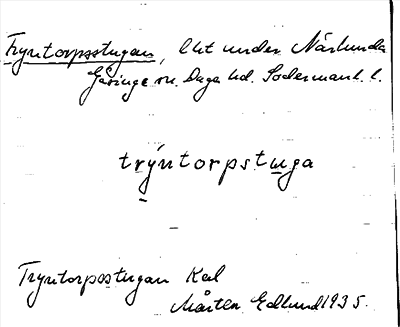 Tryntorpsstugan, lht under Närlunda
Gåsinge sn. Daga hd. Södermanl. l.
trýntorpstuga
Tryntorpsstugan Karl
Mårten Edlund 1935.